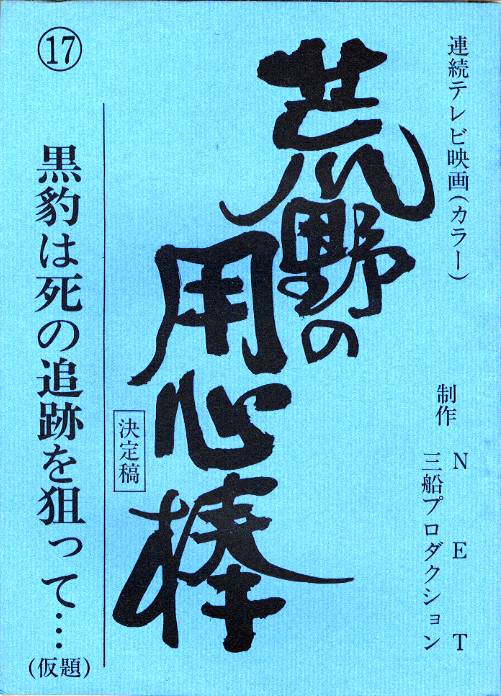 連続テレビ映画(カラー)
制作 NET
三船プロダクション
荒野の
用心棒
決定稿
⑰
黒豹は死の追跡を狙って…
(仮題)